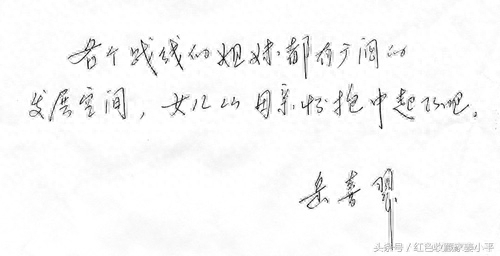 各个战线的姐妹都有广阔的
发展空间，女儿从母亲怀抱中起飞吧。
岳喜翠
头条号/红色收藏家娄小平